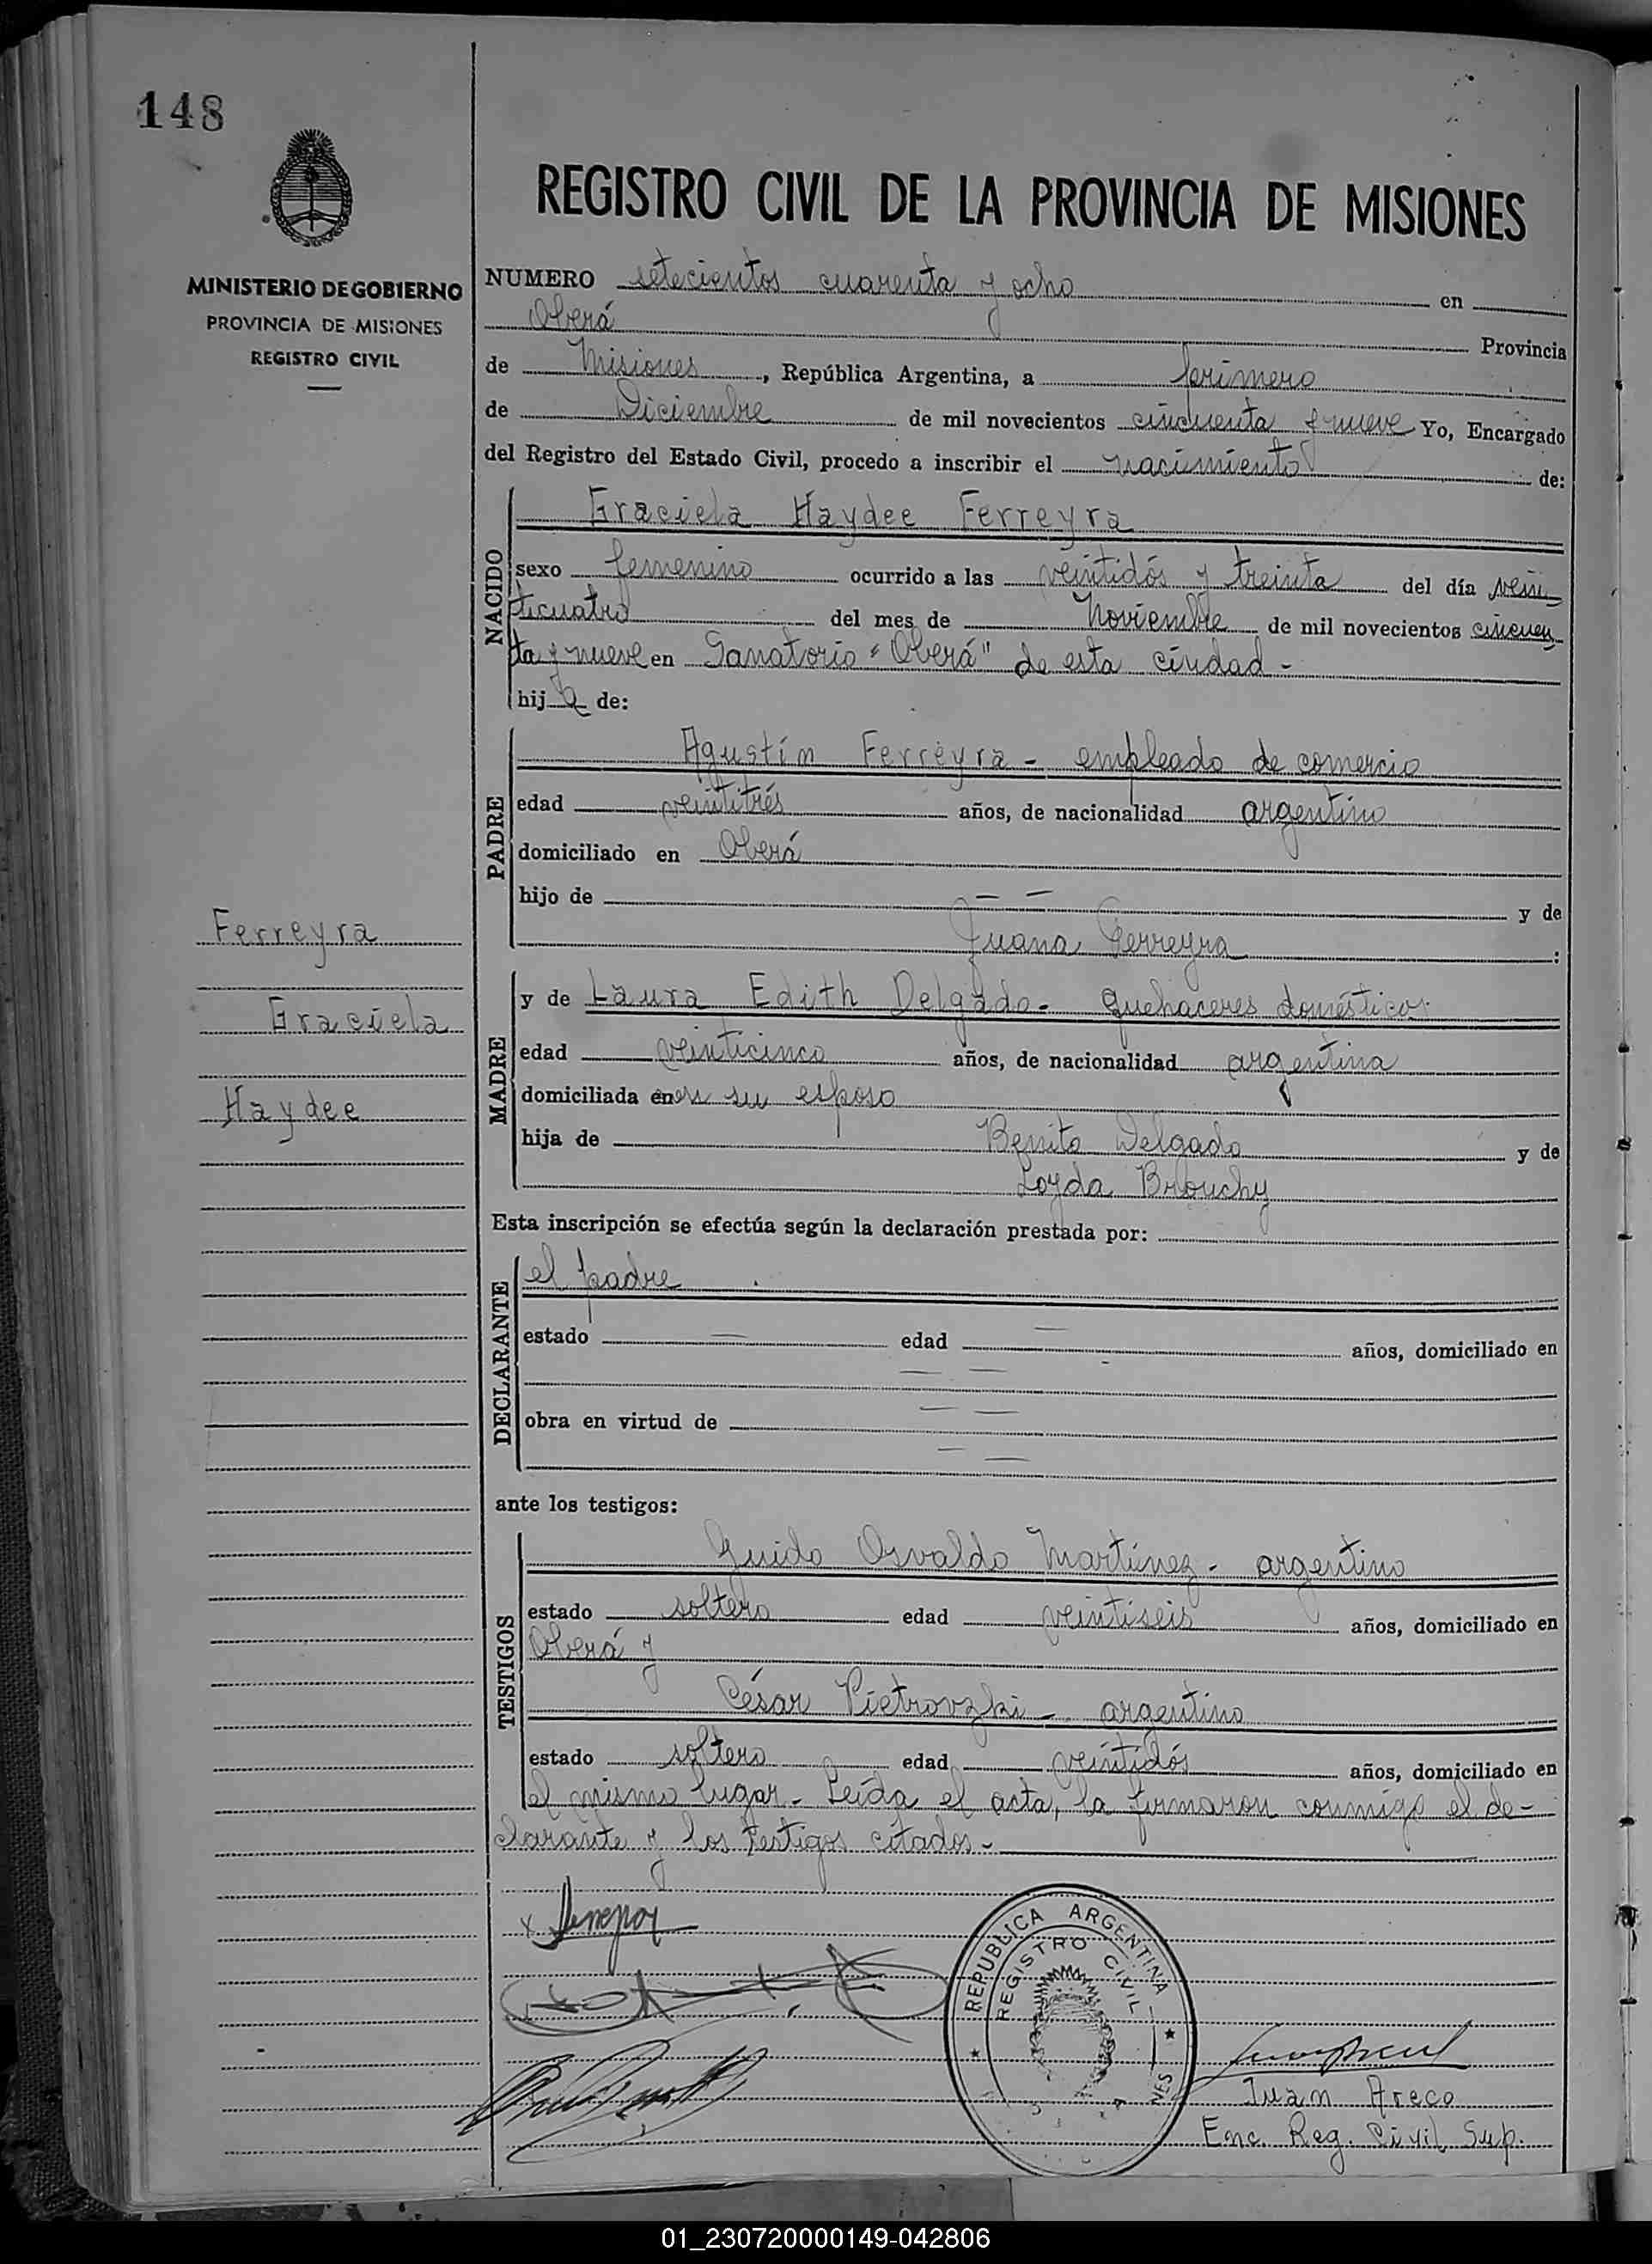 148
REGISTRO CIVIL DE LA PROVINCIA DE MISIONES
MINISTERIO DE GOBIERNO
PROVINCIA DE MISIONES
REGISTRO CIVIL
NUMERO setecientos cuarenta y ocho en
Oberá Provincia
de Misiones, República Argentina, a primero
de Diciembre de mil novecientos cincuenta y nueve Yo, Encargado
del Registro del Estado Civil, procedo a inscribir el nacimiento de:
NACIDO
Graciela Haydee Ferreyra
sexo femenino ocurrido a las veintidós y treinta del día vein-
ticuatro del mes de Noviembre de mil novecientos cincuen-
ta y nueve en Sanatorio "Oberá" de esta ciudad -
hija de:
PADRE
Agustín Ferreyra - empleado de comercio
edad veintitrés años, de nacionalidad argentino
domiciliado en Oberá
hijo de — — y de
Juana Ferreyra :
Ferreyra
Graciela
Haydee
MADRE
y de Laura Edith Delgado - quehaceres domésticos
edad veinticinco años, de nacionalidad argentina
domiciliada en su esposo
hija de Benito Delgado y de
Loyda Brouchy
Esta inscripción se efectúa según la declaración prestada por:
DECLARANTE
el padre
estado — edad — años, domiciliado en
— —
obra en virtud de — —
— —
ante los testigos:
TESTIGOS
Guido Osvaldo Martínez - argentino
estado soltero edad veintiseis años, domiciliado en
Oberá y
César Pietrovzki - argentino
estado soltero edad veintidós años, domiciliado en
el mismo lugar - Leída el acta, la firmaron conmigo el de-
clarante y los testigos citados -
REPUBLICA ARGENTINA
REGISTRO CIVIL
Juan Areco
Enc. Reg. Civil Sup.
01_230720000149-042806